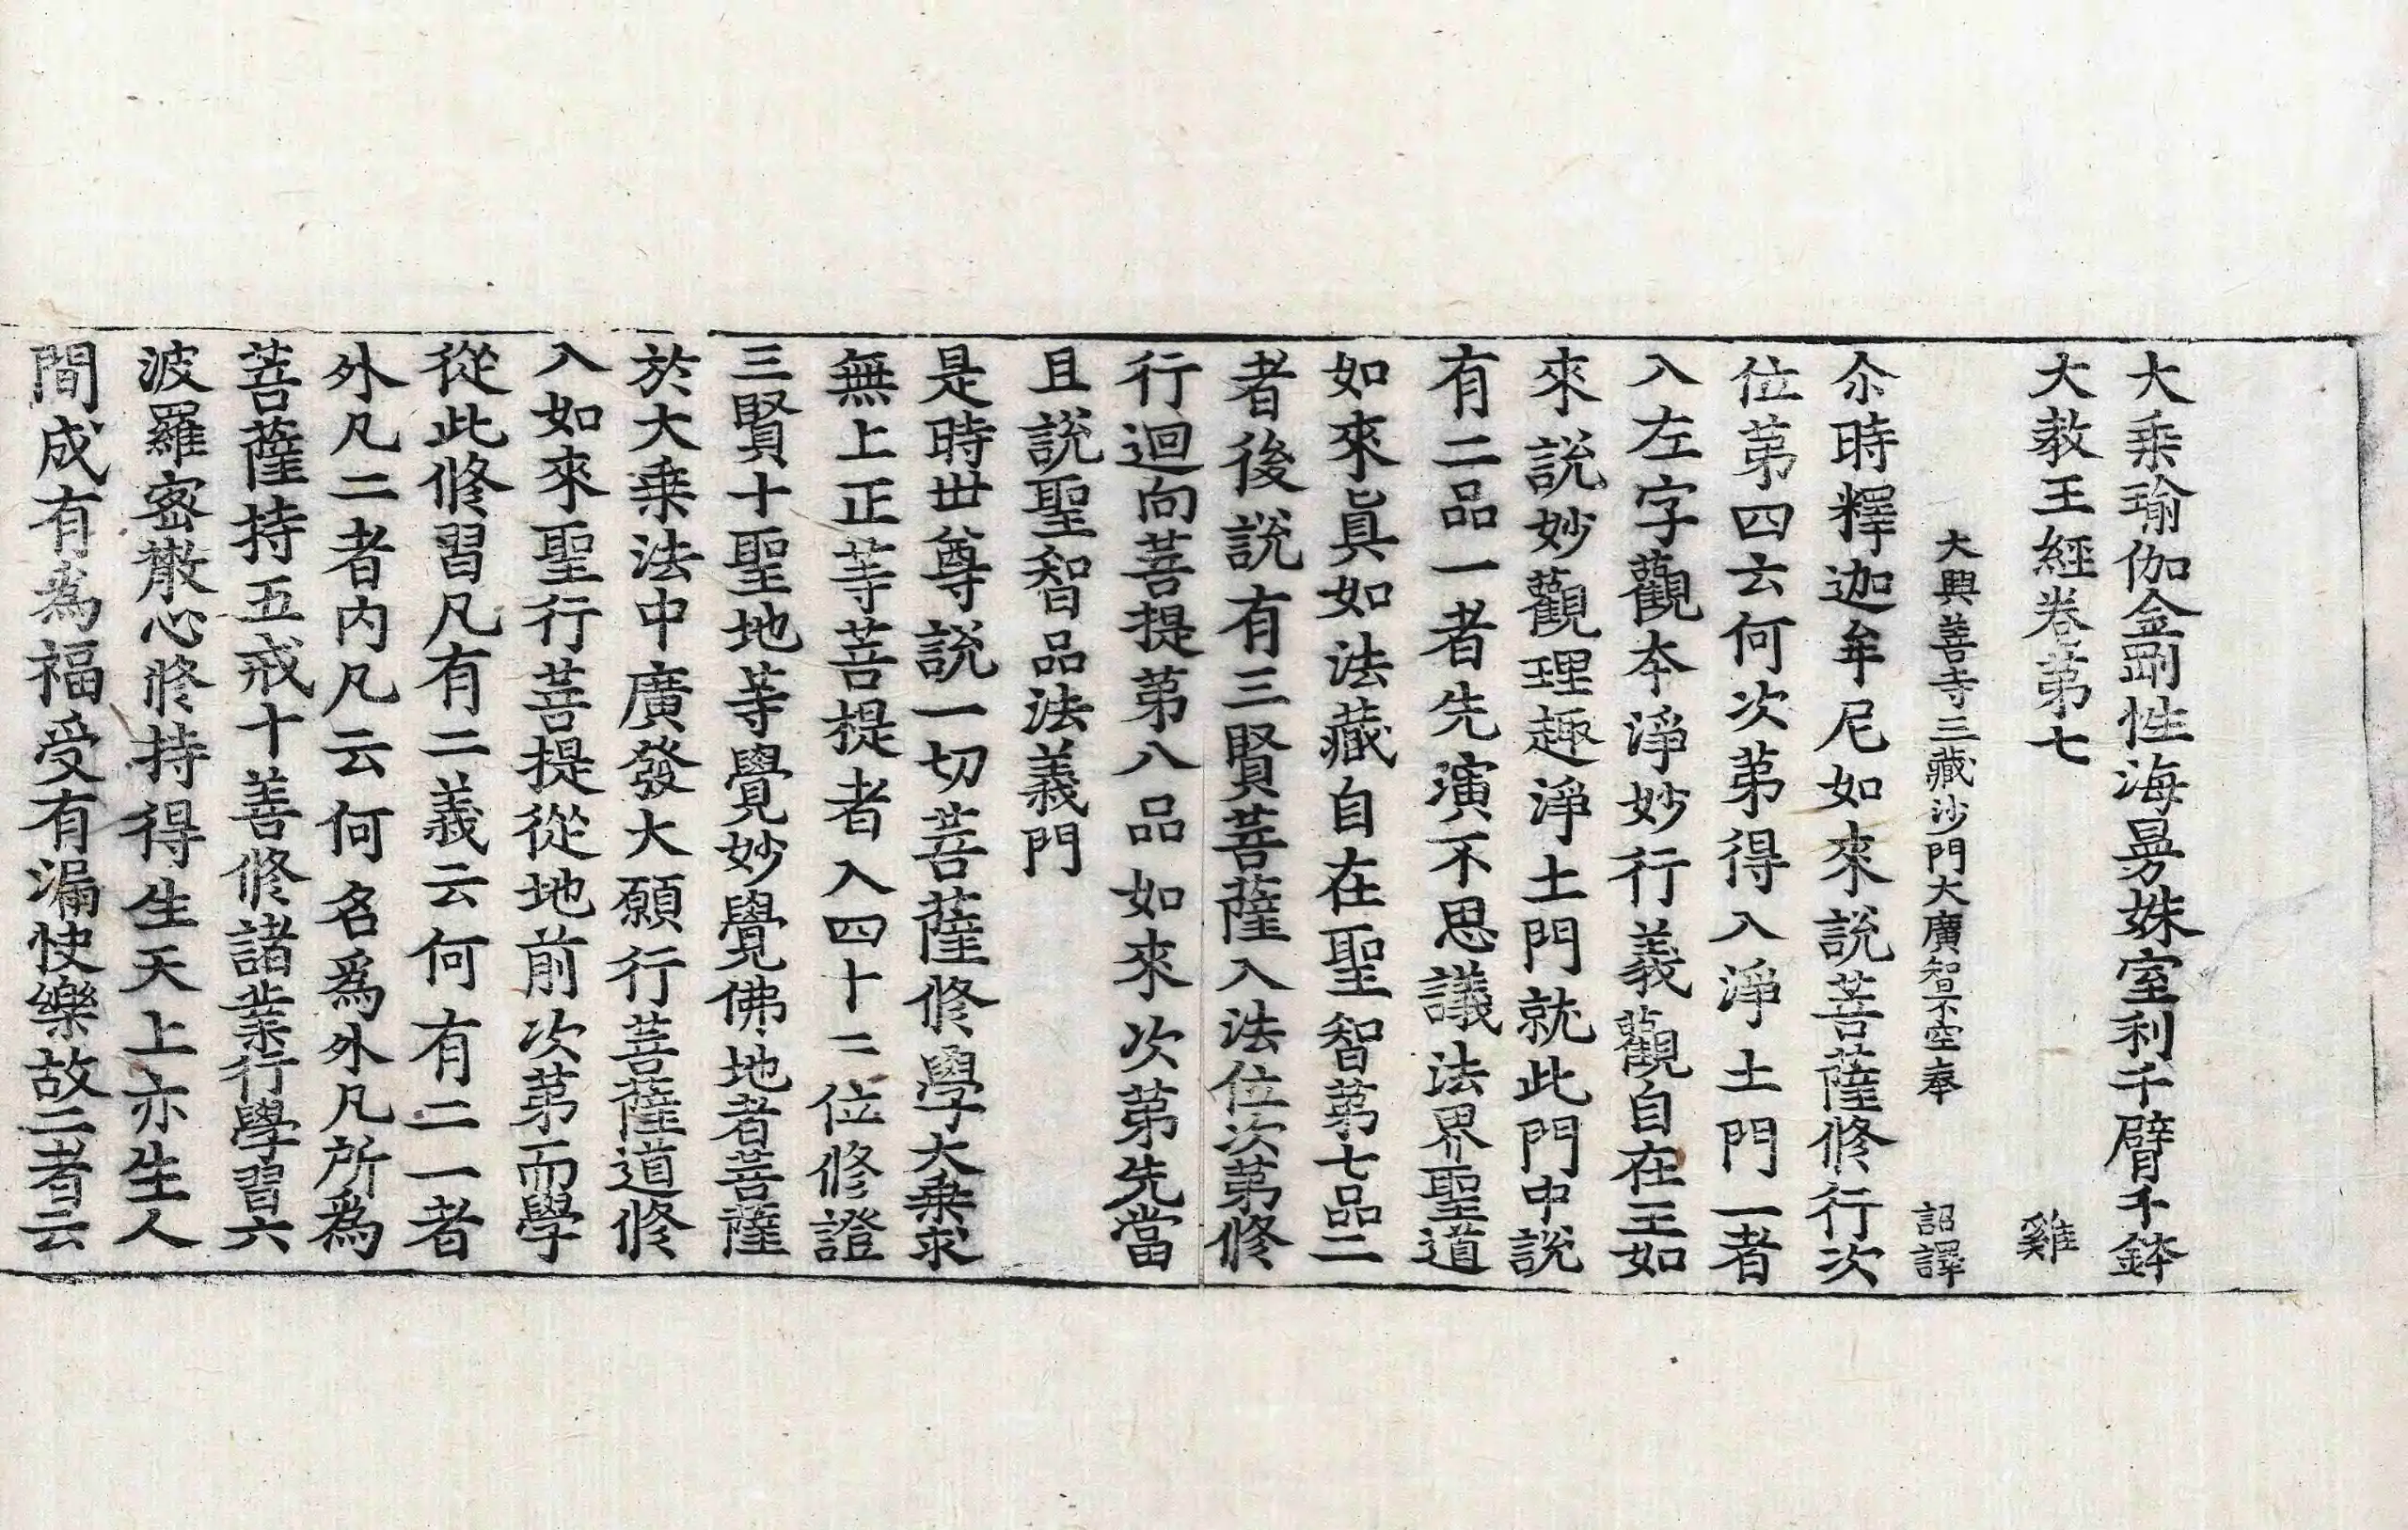 大乗瑜伽金剛性海曼殊室利千臂千鉢
大教王經卷第七　雞
大興善寺三藏沙門大廣智不空奉　詔譯
尒時釋迦牟尼如來説菩薩修行次
位苐四云何次苐得入淨土門一者
入左字觀夲淨妙行義觀自在王如
來説妙觀理趣淨土門就此門中説
有二品一者先演不思議法界聖道
如來眞如法藏自在聖智苐七品二
者後説有三賢菩薩入法位次苐修
行迴向菩提苐八品如來次苐先當
且説聖智品法義門
是時世尊説一切菩薩修學大乗求
無上正等菩提者入四十二位修證
三賢十聖地等覺妙覺佛地者菩薩
於大乗法中廣發大願行菩薩道修
入如來聖行菩提從地前次苐而學
從此修習凡有二義云何有二一者
外凡二者内凡云何名爲外凡所爲
菩薩持五戒十善修諸業行學習六
波羅宻散心將持得生天上亦生人
間成有為福受有漏快樂故二者云